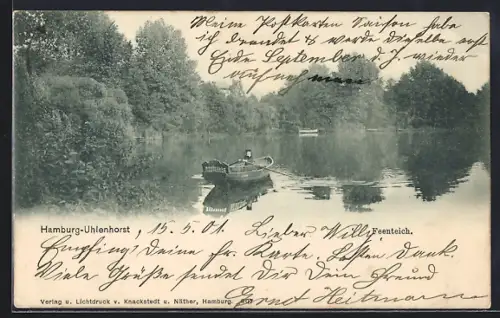 Meine Postkarten Saison habe
ich beendet & werde dieselbe erst
Ende September d. J. wieder
aufnehmen
Hamburg-Uhlenhorst, 15.5.01. Lieber Willy, Feenteich.
Empfing Deine fr. Karte. Besten Dank.
Viele Grüße sendet Dir Dein Freund
Ernst Heitmann
Verlag u. Lichtdruck v. Knackstedt u. Näther, Hamburg.